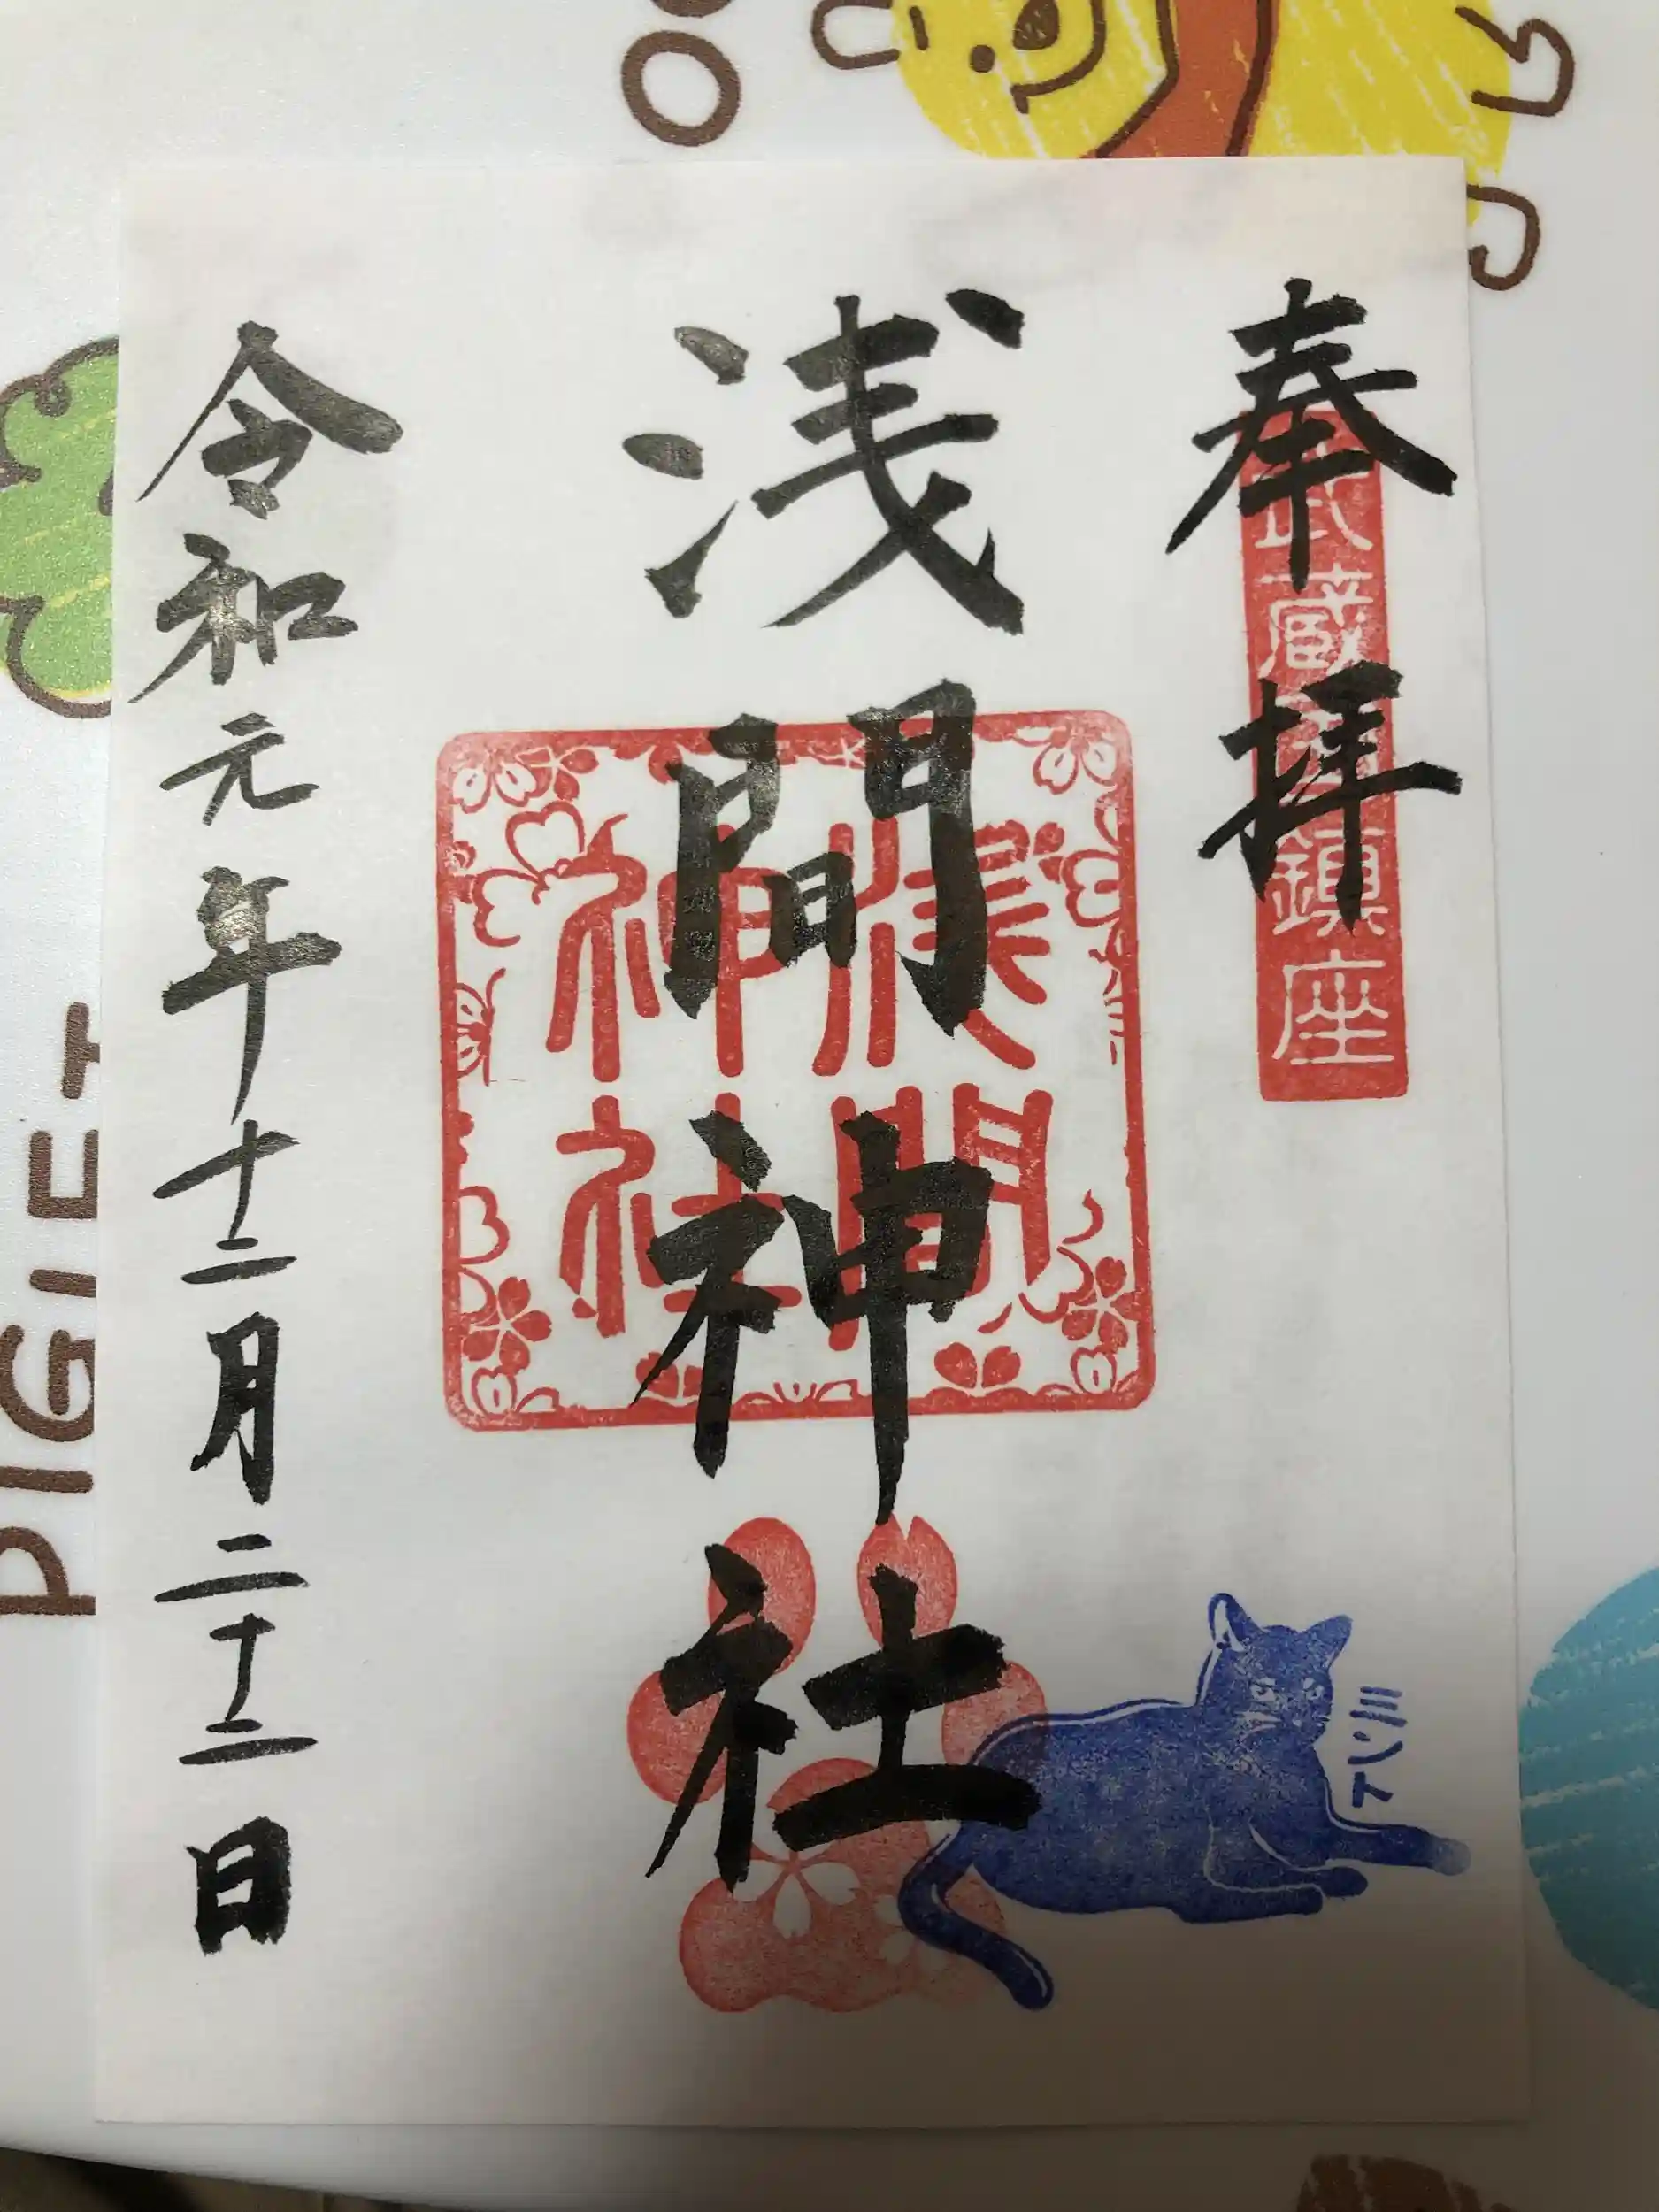 奉拝
武蔵
鎮座
浅間神社
浅間神社
令和元年十二月二十二日
PIGLET